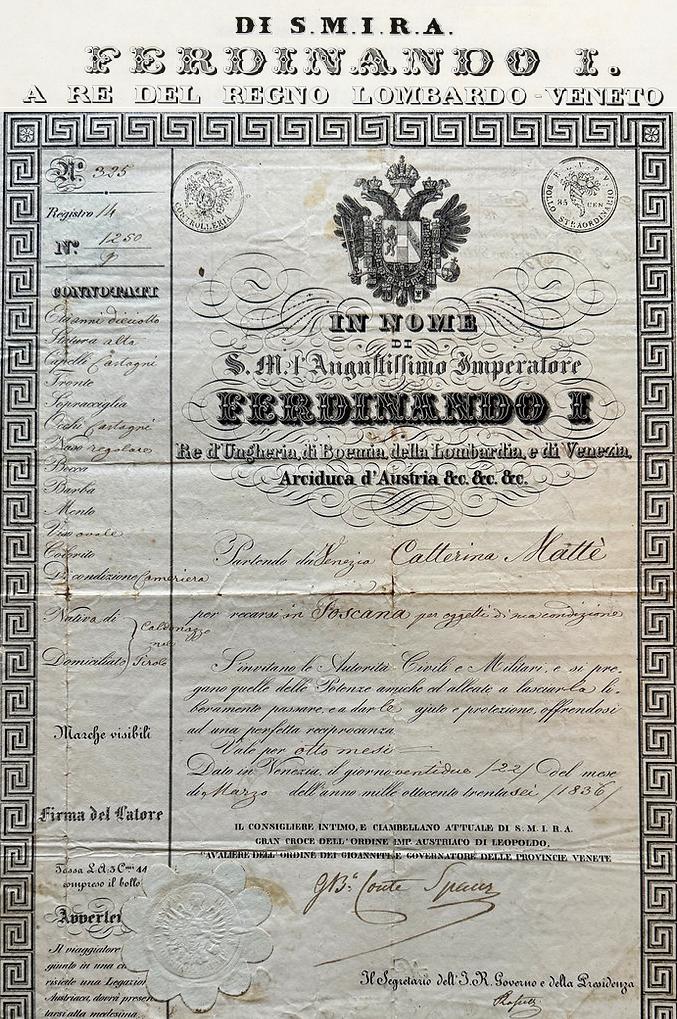 DI S.M.I.R.A.
FERDINANDO I.
A RE DEL REGNO LOMBARDO-VENETO
Nº 325
Registro 14
Nº 1250
CONTROLLERIA
BOLLO STRAORDINARIO
CEN
CONNOTATI
Età anni dieciotto
Statura alta
Capelli Castagni
Fronte
Sopracciglia
Occhi Castagni
Naso regolare
Bocca
Barba
Mento
Viso ovale
Colorito
Di condizione Cameriera
Nativa di
Caldonazzo
nel
Domiciliato Tirolo
Marche visibili
Firma del Latore
Tassa L.A. 3 Cmi 44
compreso il bollo
Avverten
Il viaggiatore
giunto in una ci
risiede una Legazion
Austriaca, dovrà presen
tarsi alla medesima,
IN NOME
DI
S.M. l'Augustissimo Imperatore
FERDINANDO I
Re d'Ungheria, di Boemia, della Lombardia, e di Venezia,
Arciduca d'Austria &c. &c. &c.
Partendo da Venezia Catterina Mattè
per recarsi in Toscana per oggetti di sua condizione
S'invitano le Autorità Civili e Militari, e si pre-
gano quelle delle Potenze amiche ed alleate a lasciarla li-
beramente passare, e a darle ajuto e protezione, offrendosi
ad una perfetta reciprocanza
Vale per otto mesi
Dato in Venezia, il giorno ventidue /22/ del mese
di Marzo dell'anno mille ottocento trentasei /1836/
IL CONSIGLIERE INTIMO, E CIAMBELLANO ATTUALE DI S.M.I.R.A.
GRAN CROCE DELL'ORDINE IMP. AUSTRIACO DI LEOPOLDO,
CAVALIERE DELL'ORDINE DEI GIOANNITI E GOVERNATORE DELLE PROVINCIE VENETE
GBa Conte Spaur
Il Segretario dell'I.R. Governo e della Presidenza